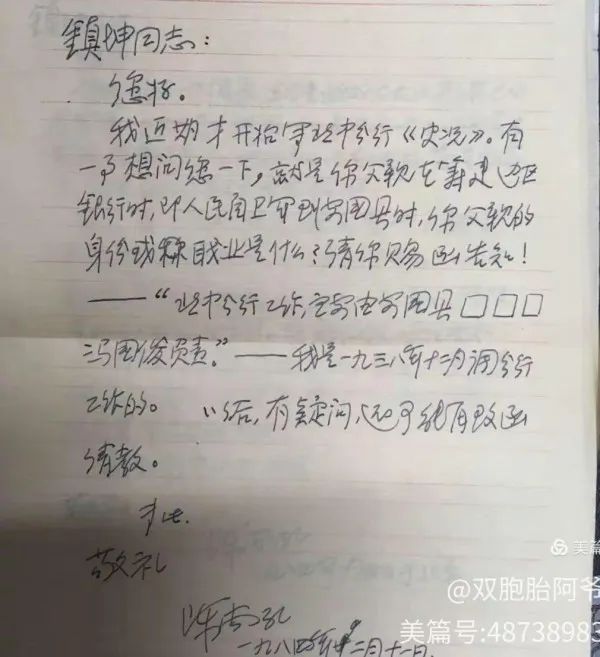 镇坤同志：
您好。
我近期才开始写冀中分行《史况》。有
一事想问您一下，就是你父亲在筹建边区
银行时，即人民自卫军到安国县时，你父亲的
身份或称职业是什么？请你赐函告知！
——“冀中分行工作，主要由安国县□□□
冯国俊负责。”——我是一九三八年十二月调分行
工作的。以后，有疑问，还可能再致函
请教。
才此.
敬礼
陈
一九八四年二月十一日.
美篇
@双胞胎阿爷
美篇号:48738983